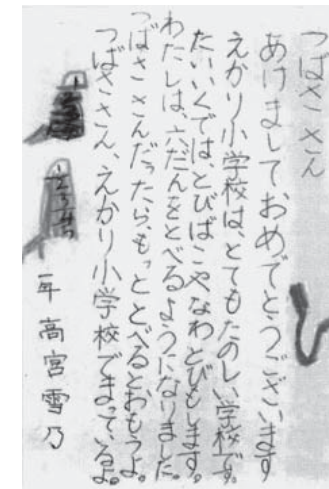 つばさ さん
あけましておめでとうございます
えかり小学校は、とてもたのしい学校です。
たいいくではとびばこやなわとびもします。
わたしは、六だんをとべるようになりました。
つばささんだったら、もっととべるとおもうよ。
つばささん、えかり小学校でまっているよ。
一年 高宮雪乃